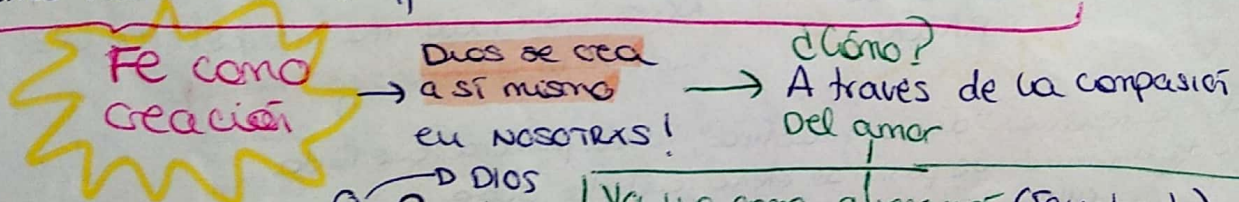 Fe como
creación
→ Dios se crea
a sí mismo
en NOSOTRXS!
→ ¿Cómo?
A traves de la compasión
Del amor
DIOS